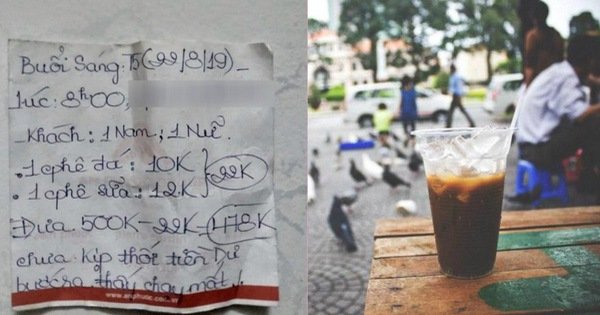 Buổi Sáng. T5 (22/8/19) _
lúc: 8h00,
_ Khách: 1 Nam; 1 Nữ.
. 1 cphê đá: 10K
. 1 cphê sữa: 12K
22K
Đưa 500K - 22K = 478K
chưa kịp thối tiền Dư
bước ra thấy chạy mất.
www.anphuoc.com.vn